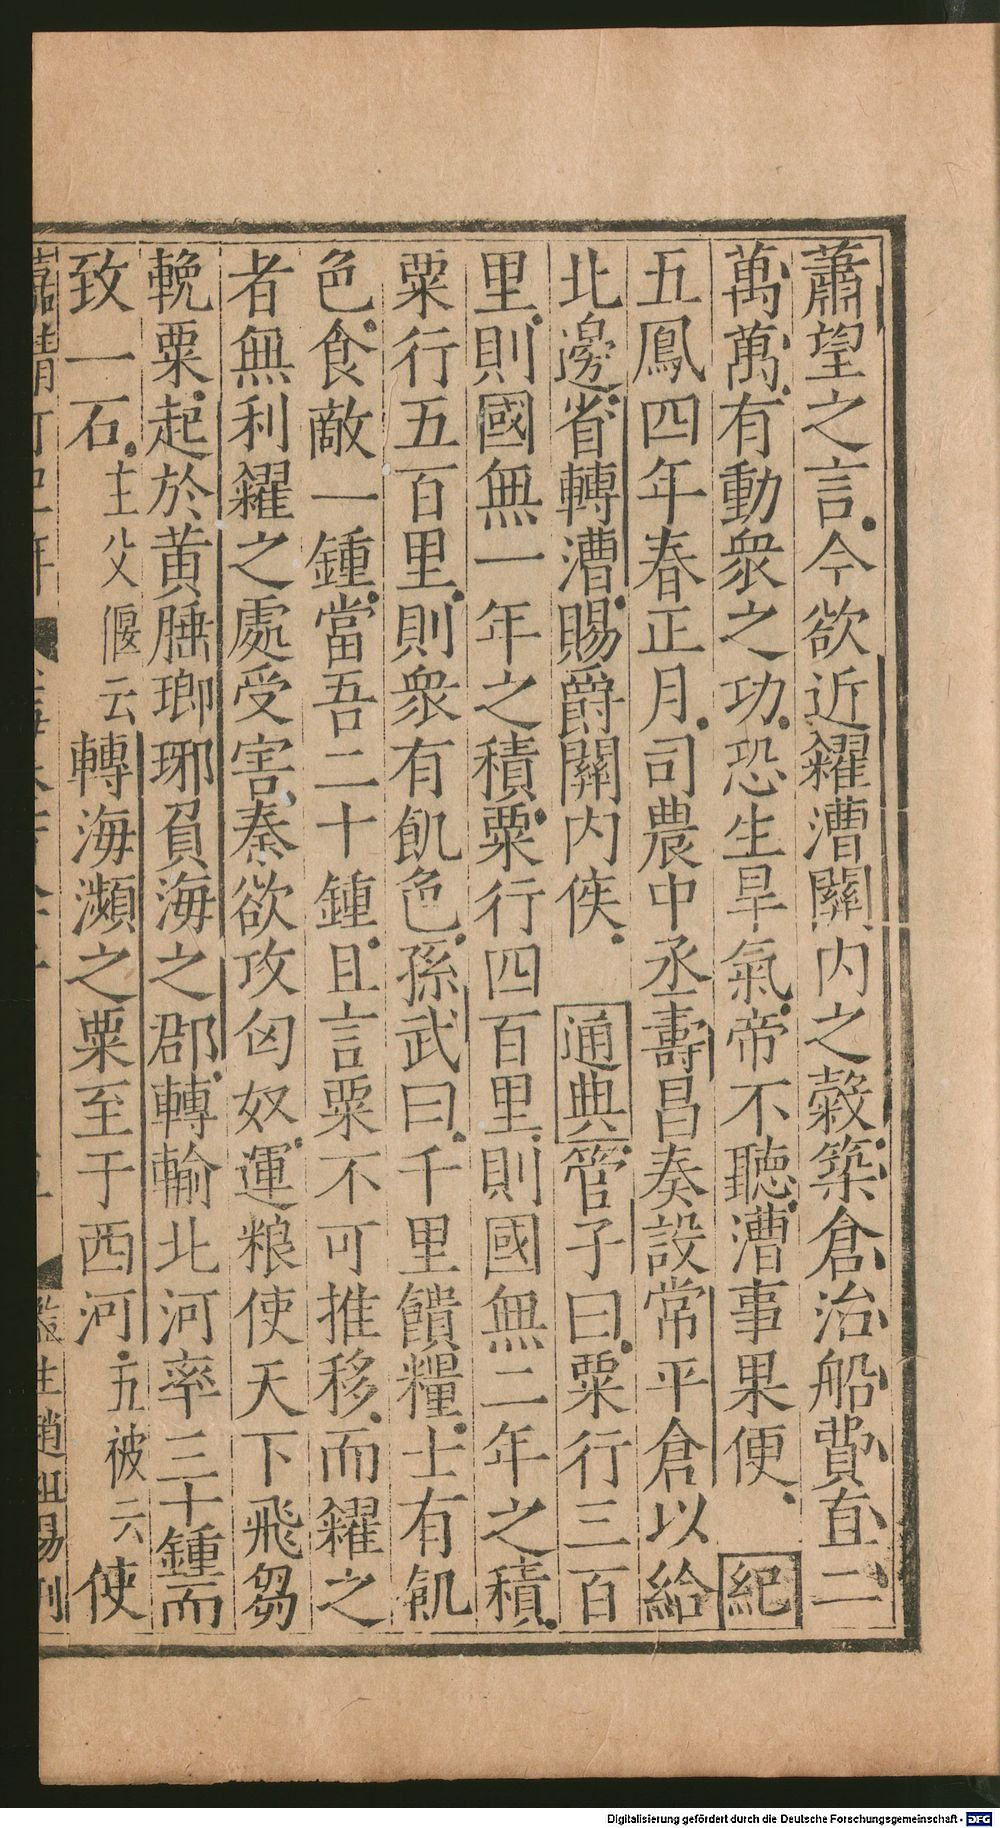 蕭望之言今欲近糴漕關內之穀築倉治船費直二
萬萬有動衆之功恐生旱氣帝不聽漕事果便紀
五鳳四年春正月司農中丞壽昌奏設常平倉以給
北邊省轉漕賜爵關內侯 通典管子曰粟行三百
里則國無一年之積粟行四百里則國無二年之積
粟行五百里則衆有飢色孫武曰千里饋糧士有飢
色食敵一鍾當吾二十鍾且言粟不可推移而糴之
者無利糴之處受害秦欲攻匈奴運粮使天下飛芻
輓粟起於黃腄瑯琊負海之郡轉輸北河率三十鍾而
致一石主父偃云轉海瀕之粟至于西河五被云使
嘉靖丁巳年
監生趙祖易刊
Digitalisierung gefördert durch die Deutsche Forschungsgemeinschaft - DFG